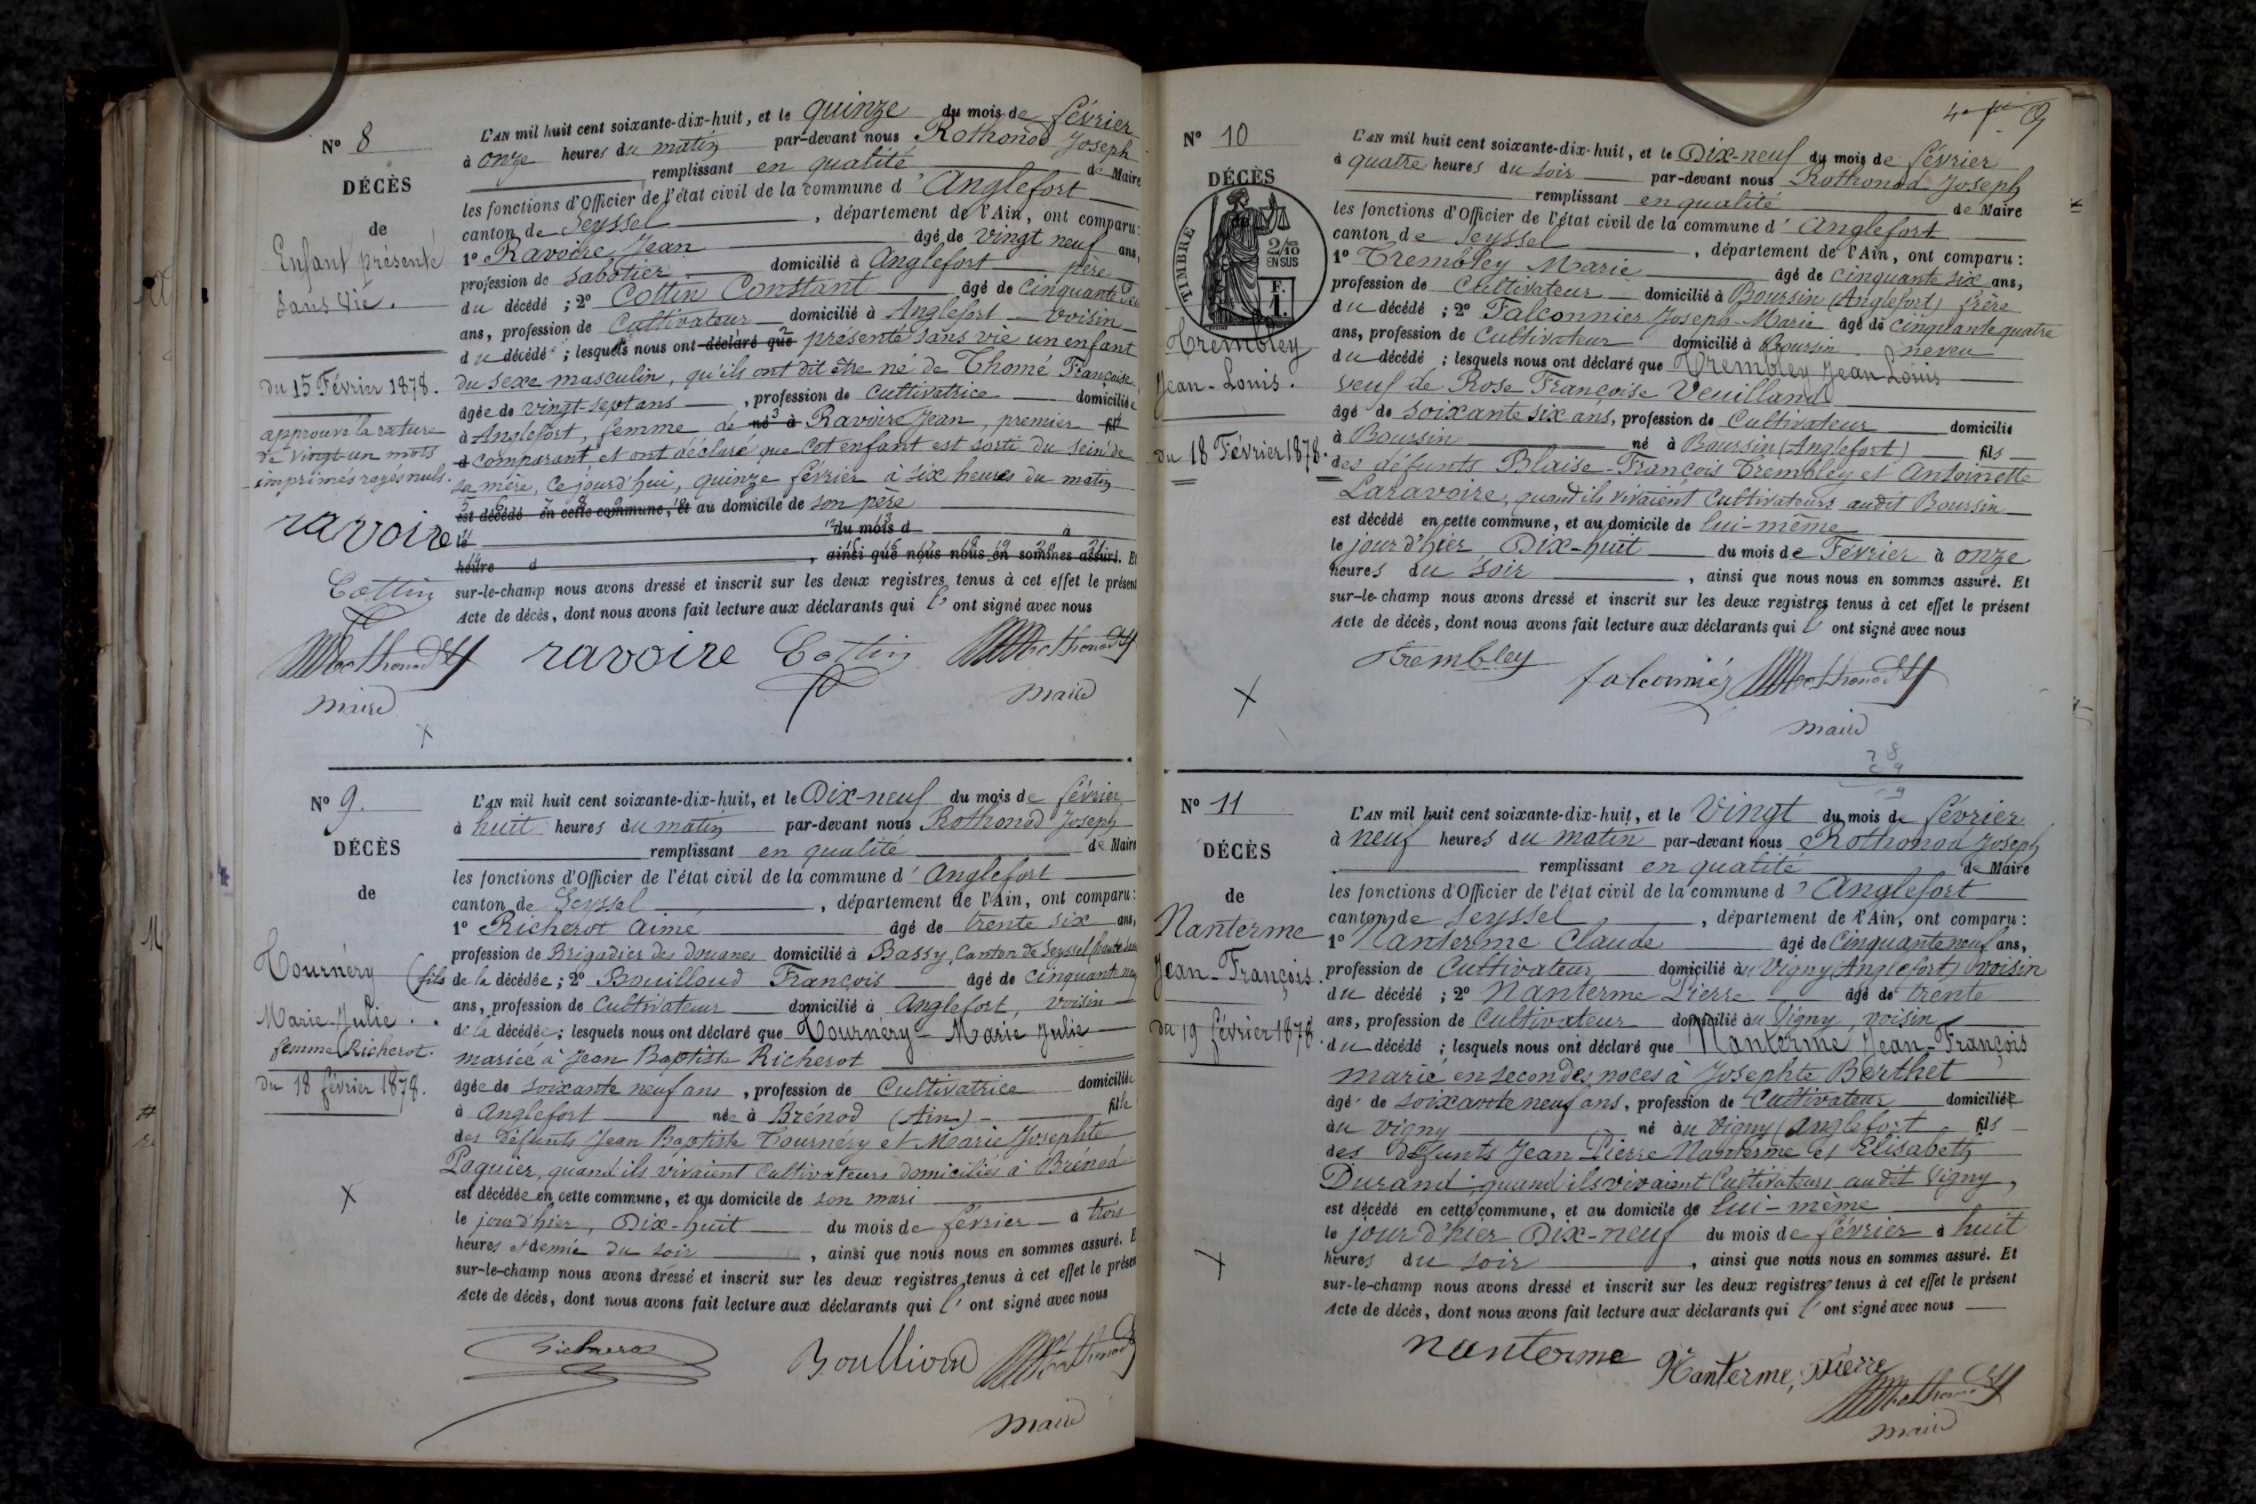 N° 8
DÉCÈS
de
Enfant présenté
sans vie.
du 15 Février 1878.
approuvé la rature
de vingt-un mots
imprimés rayés nuls.
ravoire
Cottin
Rothonod
maire
L'AN mil huit cent soixante-dix-huit, et le quinze du mois de février
à onze heures du matin par-devant nous Rothonod Joseph
remplissant en qualité de Maire
les fonctions d'Officier de l'état civil de la commune d'Anglefort
canton de Seyssel, département de l'Ain, ont comparu:
1° Ravoire Jean âgé de vingt neuf ans,
profession de sabotier domicilié à Anglefort père
du décédé; 2° Cottin Constant âgé de cinquante
ans, profession de Cultivateur domicilié à Anglefort voisin
du décédé; lesquels nous ont déclaré que présenté sans vie un enfant
du sexe masculin, qu'ils ont dit être né de Thomé Françoise
âgée de vingt-sept ans, profession de cultivatrice domiciliée
à Anglefort, femme de né à Ravoire Jean, premier fil
d comparant et ont déclaré que cet enfant est sorti du sein de
sa mère, ce jourd'hui, quinze février à six heures du matin
est décédé en cette commune, et au domicile de son père
le du mois d à
heure d, ainsi que nous nous en sommes assuré. Et
sur-le-champ nous avons dressé et inscrit sur les deux registres tenus à cet effet le présent
Acte de décès, dont nous avons fait lecture aux déclarants qui l'ont signé avec nous
ravoire Cottin Rothonod
maire
N° 9.
DÉCÈS
de
Tournéry
Marie-Julie.
femme Richerot.
du 18 février 1878.
L'AN mil huit cent soixante-dix-huit, et le Dix-neuf du mois de février
à huit heures du matin par-devant nous Rothonod Joseph
remplissant en qualité de Maire
les fonctions d'Officier de l'état civil de la commune d'Anglefort
canton de Seyssel, département de l'Ain, ont comparu:
1° Richerot Aimé âgé de trente six ans,
profession de Brigadier des douanes domicilié à Bassy, Canton de Seyssel (haute
(fils de la décédée; 2° Bouilloud François âgé de cinquant neuf
ans, profession de Cultivateur domicilié à Anglefort, voisin
de la décédée; lesquels nous ont déclaré que Tournéry Marie Julie
mariée à Jean Baptiste Richerot
âgée de soixante neuf ans, profession de Cultivatrice domiciliée
à Anglefort née à Brénod (Ain) fille
des défunts Jean Baptiste Tournéry et Marie Josephte
Paquier, quand ils vivaient Cultivateurs domiciliés à Brénod
est décédée en cette commune, et au domicile de son mari
le jour d'hier, Dix-huit du mois de février à trois
heures et demie du soir, ainsi que nous nous en sommes assuré. E
sur-le-champ nous avons dressé et inscrit sur les deux registres tenus à cet effet le présen
Acte de décès, dont nous avons fait lecture aux déclarants qui l'ont signé avec nous
Boullioud Rothonod
maire
N° 10
DÉCÈS
de
TIMBRE
2/10
EN SUS
F.
1.
Trembley
Jean-Louis.
du 18 Février 1878.
L'AN mil huit cent soixante-dix-huit, et le Dix-neuf du mois de février
à quatre heures du soir par-devant nous Rothonod Joseph
remplissant en qualité de Maire
les fonctions d'Officier de l'état civil de la commune d'Anglefort
canton de Seyssel, département de l'Ain, ont comparu:
1° Trembley Marie âgé de cinquante six ans,
profession de Cultivateur domicilié à Boursin (Anglefort) frère
du décédé; 2° Falconnier Joseph Marie âgé de cinquante quatre
ans, profession de Cultivateur domicilié à Boursin neveu
du décédé; lesquels nous ont déclaré que Trembley Jean Louis
veuf de Rose Françoise Veuilland
âgé de soixante six ans, profession de Cultivateur domicilié
à Boursin né à Boursin (Anglefort) fils
des défunts Blaise-François Trembley et Antoinette
Laravoire, quand ils vivaient Cultivateurs audit Boursin
est décédé en cette commune, et au domicile de lui-même
le jour d'hier Dix-huit du mois de Février à onze
heures du soir, ainsi que nous nous en sommes assuré. Et
sur-le-champ nous avons dressé et inscrit sur les deux registres tenus à cet effet le présent
Acte de décès, dont nous avons fait lecture aux déclarants qui l'ont signé avec nous
Trembley
falconnier Rothonod
maire
N° 11
DÉCÈS
de
Nanterme
Jean-François.
du 19 février 1878.
L'AN mil huit cent soixante-dix-huit, et le Vingt du mois de février
à neuf heures du matin par-devant nous Rothonod Joseph
remplissant en qualité de Maire
les fonctions d'Officier de l'état civil de la commune d'Anglefort
canton de Seyssel, département de l'Ain, ont comparu:
1° Nanterme Claude âgé de Cinquante neuf ans,
profession de Cultivateur domicilié au Vigny (Anglefort) voisin
du décédé; 2° Nanterme Pierre âgé de trente
ans, profession de Cultivateur domicilié au Vigny, voisin
du décédé; lesquels nous ont déclaré que Nanterme Jean-François
marié en secondes noces à Josephte Berthet
âgé de soixante neuf ans, profession de Cultivateur domicilié
au Vigny né au Vigny (Anglefort fils
des défunts Jean Pierre Nanterme et Elisabeth
Durand, quand ils vivaient Cultivateurs audit Vigny,
est décédé en cette commune, et au domicile de lui-même
le jour d'hier Dix-neuf du mois de février à huit
heures du soir, ainsi que nous nous en sommes assuré. Et
sur-le-champ nous avons dressé et inscrit sur les deux registres tenus à cet effet le présent
Acte de décès, dont nous avons fait lecture aux déclarants qui l'ont signé avec nous
nanterme Nanterme, Pierre
Rothonod
maire